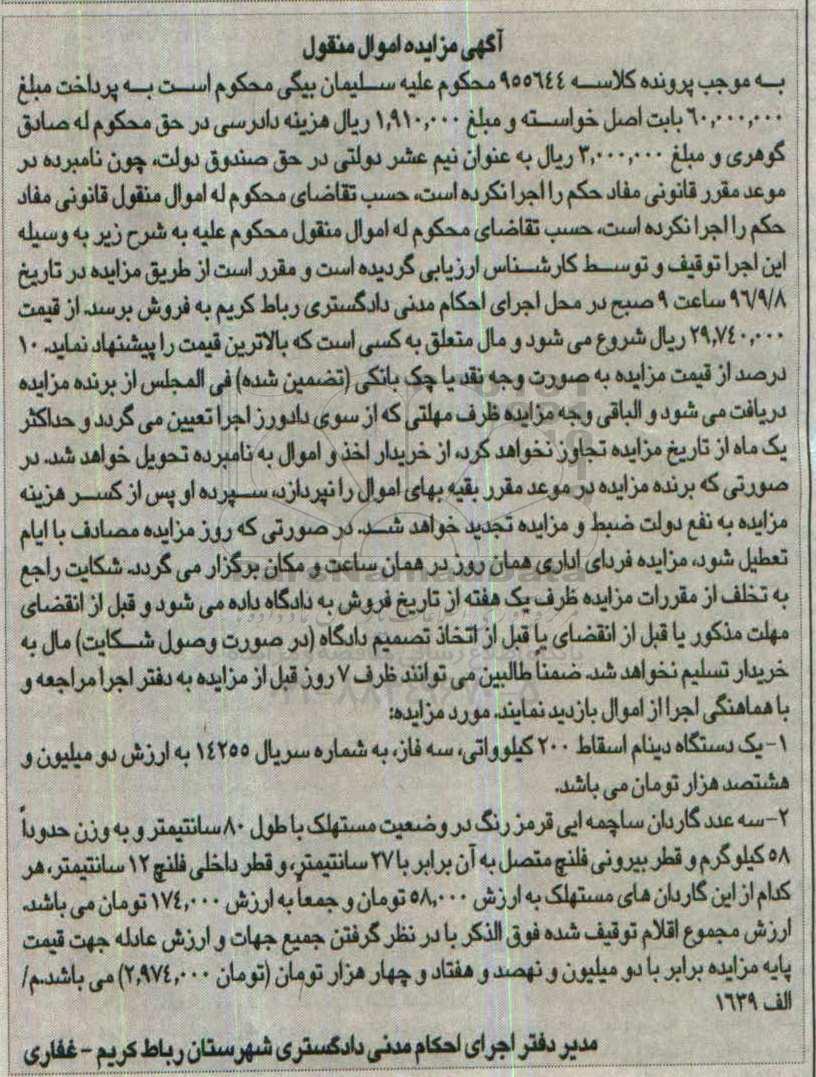 آگهی مزایده اموال منقول
به موجب پرونده کلاسه ۹۵۵۶۴۴ محکوم علیه سلیمان بیگی محکوم است به پرداخت مبلغ
۶۰,۰۰۰,۰۰۰ بابت اصل خواسته و مبلغ ۱,۹۱۰,۰۰۰ ریال هزینه دادرسی در حق محکوم له صادق
گوهری و مبلغ ۳,۰۰۰,۰۰۰ ریال به عنوان نیم عشر دولتی در حق صندوق دولت، چون نامبرده در
موعد مقرر قانونی مفاد حکم را اجرا نکرده است، حسب تقاضای محکوم له اموال منقول قانونی مفاد
حکم را اجرا نکرده است، حسب تقاضای محکوم له اموال منقول محکوم علیه به شرح زیر به وسیله
این اجرا توقیف و توسط کارشناس ارزیابی گردیده است و مقرر است از طریق مزایده در تاریخ
۹۶/۹/۸ ساعت ۹ صبح در محل اجرای احکام مدنی دادگستری رباط کریم به فروش برسد. از قیمت
۲۹,۷۴۰,۰۰۰ ریال شروع می شود و مال متعلق به کسی است که بالاترین قیمت را پیشنهاد نماید. ۱۰
درصد از قیمت مزایده به صورت وجه نقد یا چک بانکی (تضمین شده) فی المجلس از برنده مزایده
دریافت می شود و الباقی وجه مزایده ظرف مهلتی که از سوی دادورز اجرا تعیین می گردد و حداکثر
یک ماه از تاریخ مزایده تجاوز نخواهد کرد، از خریدار اخذ و اموال به نامبرده تحویل خواهد شد. در
صورتی که برنده مزایده در موعد مقرر بقیه بهای اموال را نپردازد، سپرده او پس از کسر هزینه
مزایده به نفع دولت ضبط و مزایده تجدید خواهد شد. در صورتی که روز مزایده مصادف با ایام
تعطیل شود، مزایده فردای اداری همان روز در همان ساعت و مکان برگزار می گردد. شکایت راجع
به تخلف از مقررات مزایده ظرف یک هفته از تاریخ فروش به دادگاه داده می شود و قبل از انقضای
مهلت مذکور یا قبل از انقضای یا قبل از اتخاذ تصمیم دادگاه (در صورت وصول شکایت) مال به
خریدار تسلیم نخواهد شد. ضمناً طالبین می توانند ظرف ۷ روز قبل از مزایده به دفتر اجرا مراجعه و
با هماهنگی اجرا از اموال بازدید نمایند. مورد مزایده:
۱- یک دستگاه دینام اسقاط ۲۰۰ کیلوواتی، سه فاز، به شماره سریال ۱۴۲۵۵ به ارزش دو میلیون و
هشتصد هزار تومان می باشد.
۲- سه عدد گاردان ساچمه ایی قرمز رنگ در وضعیت مستهلک با طول ۸۰ سانتیمتر و به وزن حدوداً
۵۸ کیلوگرم و قطر بیرونی فلنچ متصل به آن برابر با ۲۷ سانتیمتر، و قطر داخلی فلنچ ۱۲ سانتیمتر، هر
کدام از این گاردان های مستهلک به ارزش ۵۸,۰۰۰ تومان و جمعاً به ارزش ۱۷۴,۰۰۰ تومان می باشد.
ارزش مجموع اقلام توقیف شده فوق الذکر با در نظر گرفتن جمیع جهات و ارزش عادله جهت قیمت
پایه مزایده برابر با دو میلیون و نهصد و هفتاد و چهار هزار تومان (تومان ۲,۹۷۴,۰۰۰) می باشد.م/
الف ۱۶۳۹
مدیر دفتر اجرای احکام مدنی دادگستری شهرستان رباط کریم - غفاری